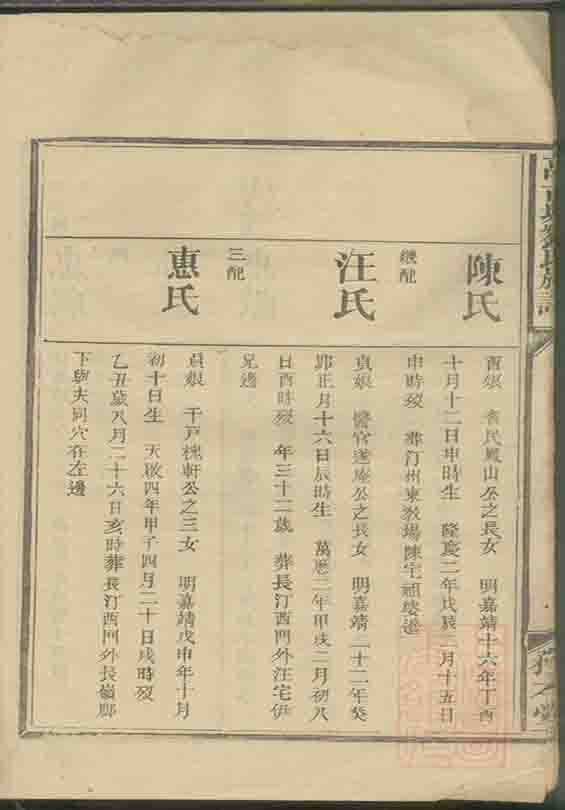 陳氏
酉娘 省民鳳山公之長女 明嘉靖十六年丁酉
十月十二日申時生 隆慶二年戊辰二月十五日
申時歿 葬汀州東教場陳宅祖婆邊
繼配
汪氏
貞娘 醫官遂庵公之長女 明嘉靖二十二年癸
卯正月十六日辰時生 萬曆二年甲戌二月初八
日酉時歿 年三十二歲 葬長汀西門外汪宅伊
兄邊
三配
惠氏
貞娘 千戶槐軒公之三女 明嘉靖戊申年十月
初十日生 天啟四年甲子四月二十日戌時歿
乙丑歲八月二十六日亥時葬長汀西門外長嶺鄉
下與夫同穴在左邊